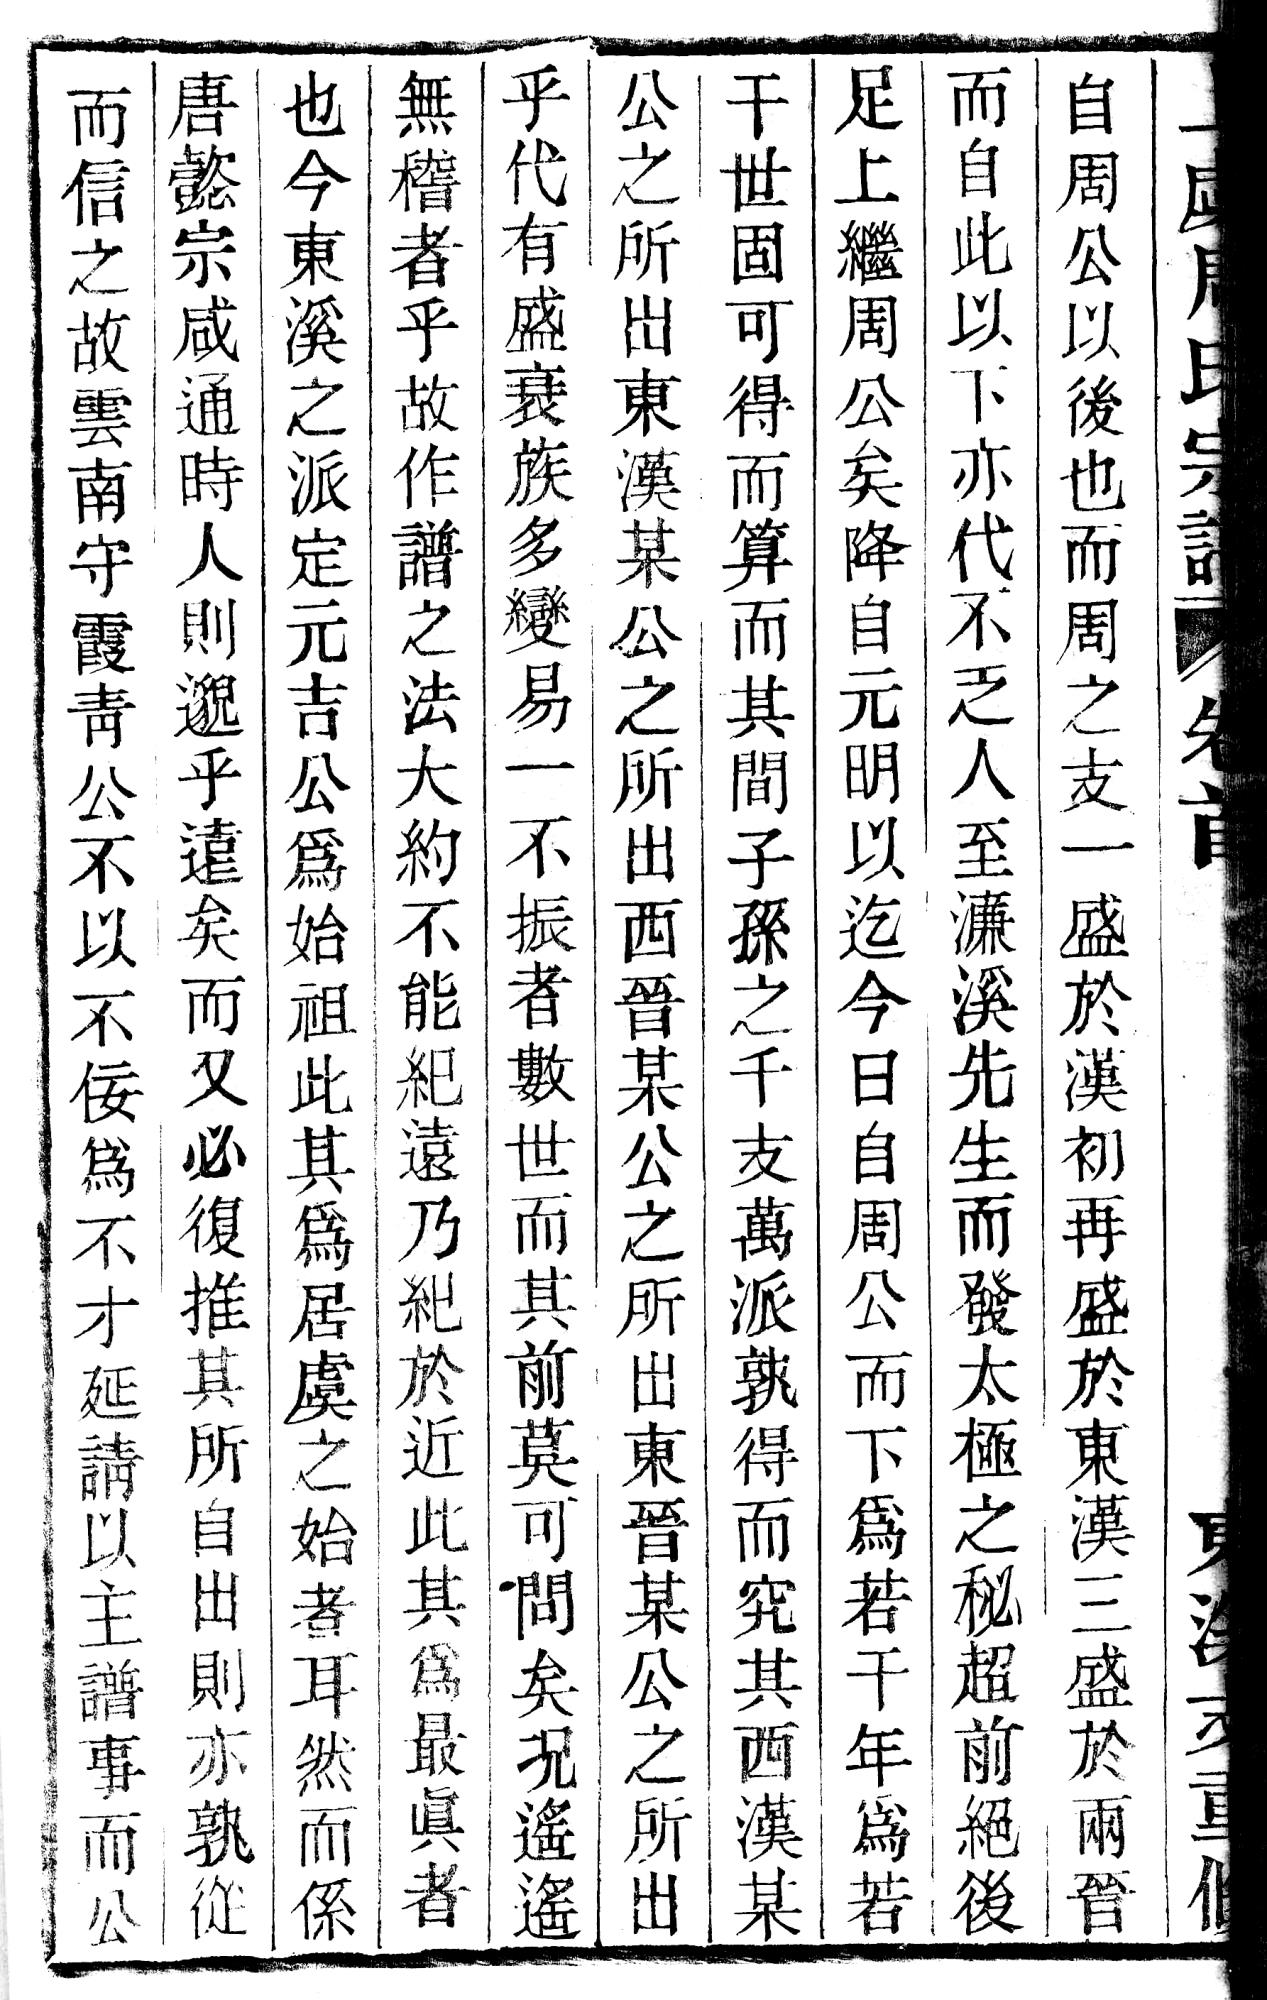 虞周氏宗譜 卷首 東溪 重修
自周公以後也而周之支一盛於漢初再盛於東漢三盛於兩晉
而自此以下亦代不乏人至濂溪先生而發太極之秘超前絕後
足上繼周公矣降自元明以迄今日自周公而下爲若干年爲若
干世固可得而算而其間子孫之千支萬派孰得而究其西漢某
公之所出東漢某公之所出西晉某公之所出東晉某公之所出
乎代有盛衰族多變易一不振者數世而其前莫可問矣況遙遙
無稽者乎故作譜之法大約不能紀遠乃紀於近此其爲最眞者
也今東溪之派定元吉公爲始祖此其爲居虞之始者耳然而係
唐懿宗咸通時人則邈乎遠矣而又必復推其所自出則亦孰從
而信之故雲南守霞青公不以不佞爲不才延請以主譜事而公